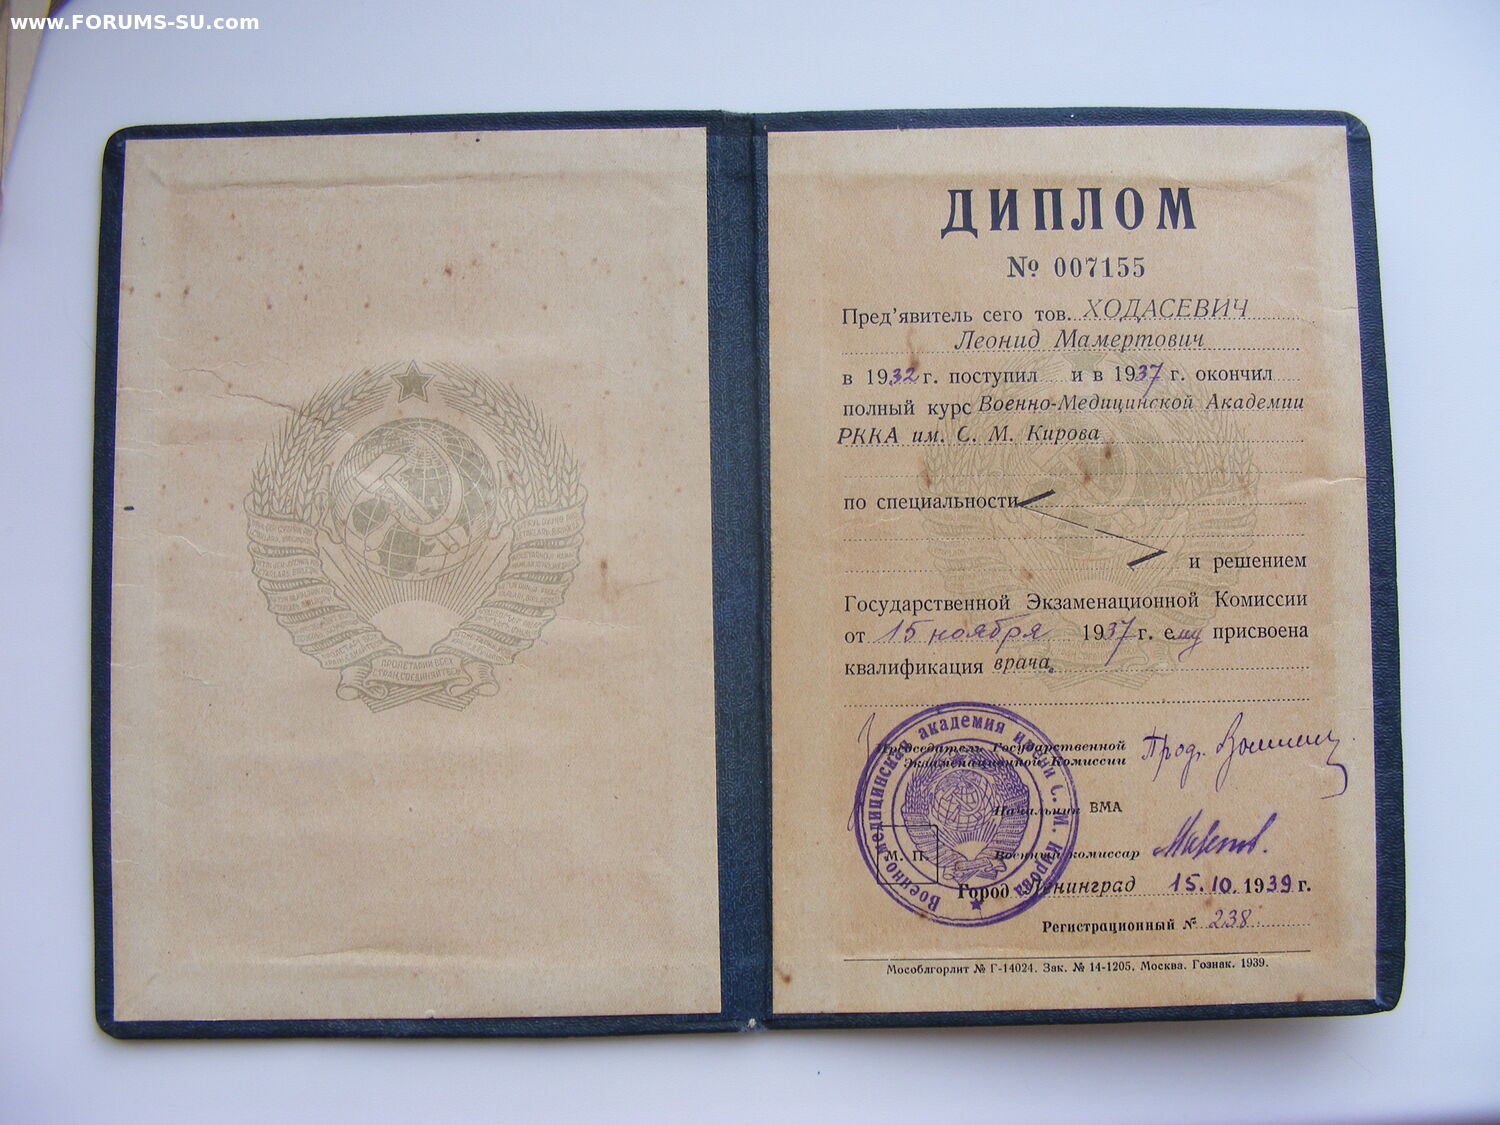 www.FORUMS-SU.com
ПРОЛЕТАРИИ ВСЕХ
СТРАН, СОЕДИНЯЙТЕСЬ
ДИПЛОМ
№ 007155
Пред'явитель сего тов. ХОДАСЕВИЧ
Леонид Мамертович
в 1932 г. поступил и в 1937 г. окончил
полный курс Военно-Медицинской Академии
РККА им. С. М. Кирова
по специальности
и решением
Государственной Экзаменационной Комиссии
от 15 ноября 1937 г. ему присвоена
квалификация врача.
Военно-медицинская академия имени С. М. Кирова
Председатель Государственной
Экзаменационной Комиссии
Начальник ВМА
М. П. Военный комиссар
Город Ленинград 15.10.1939 г.
Регистрационный № 238.
Мособлгорлит № Г-14024. Зак. № 14-1205. Москва. Гознак. 1939.